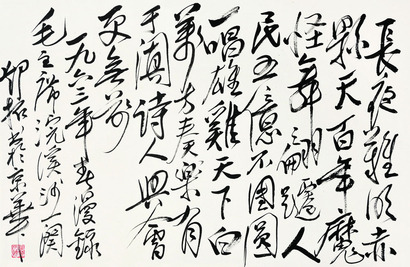 長夜難明赤
縣天百年魔
怪舞翩躚人
民五億不團圓
一唱雄雞天下白
萬方奏樂有
于闐詩人興會
更無前
一九六三年春漫錄
毛主席浣溪沙一闋
鄧拓於京華